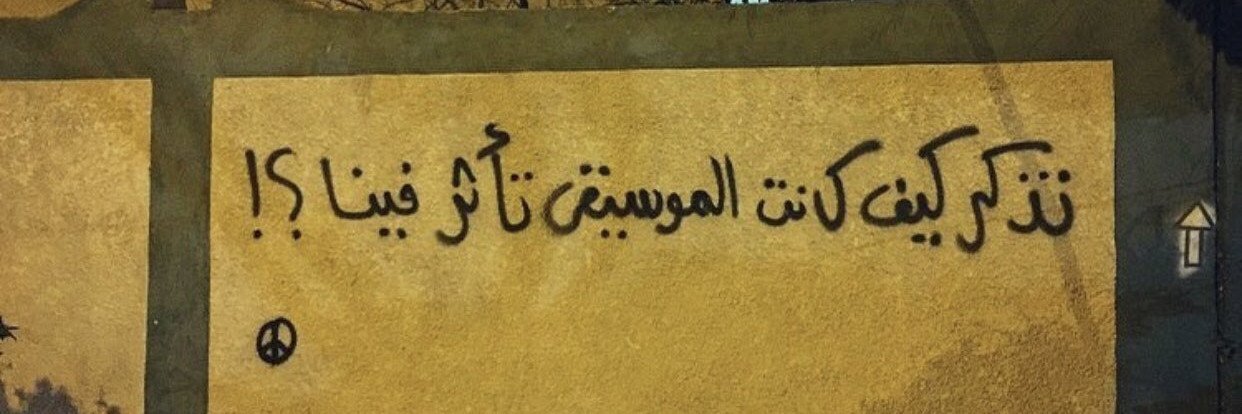 تتذكر كيف كانت الموسيقى تأثر فينا ؟!